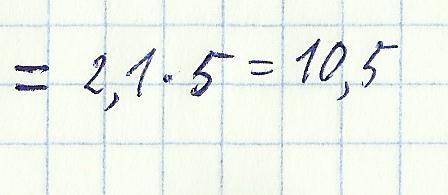 = 2,1 · 5 = 10,5